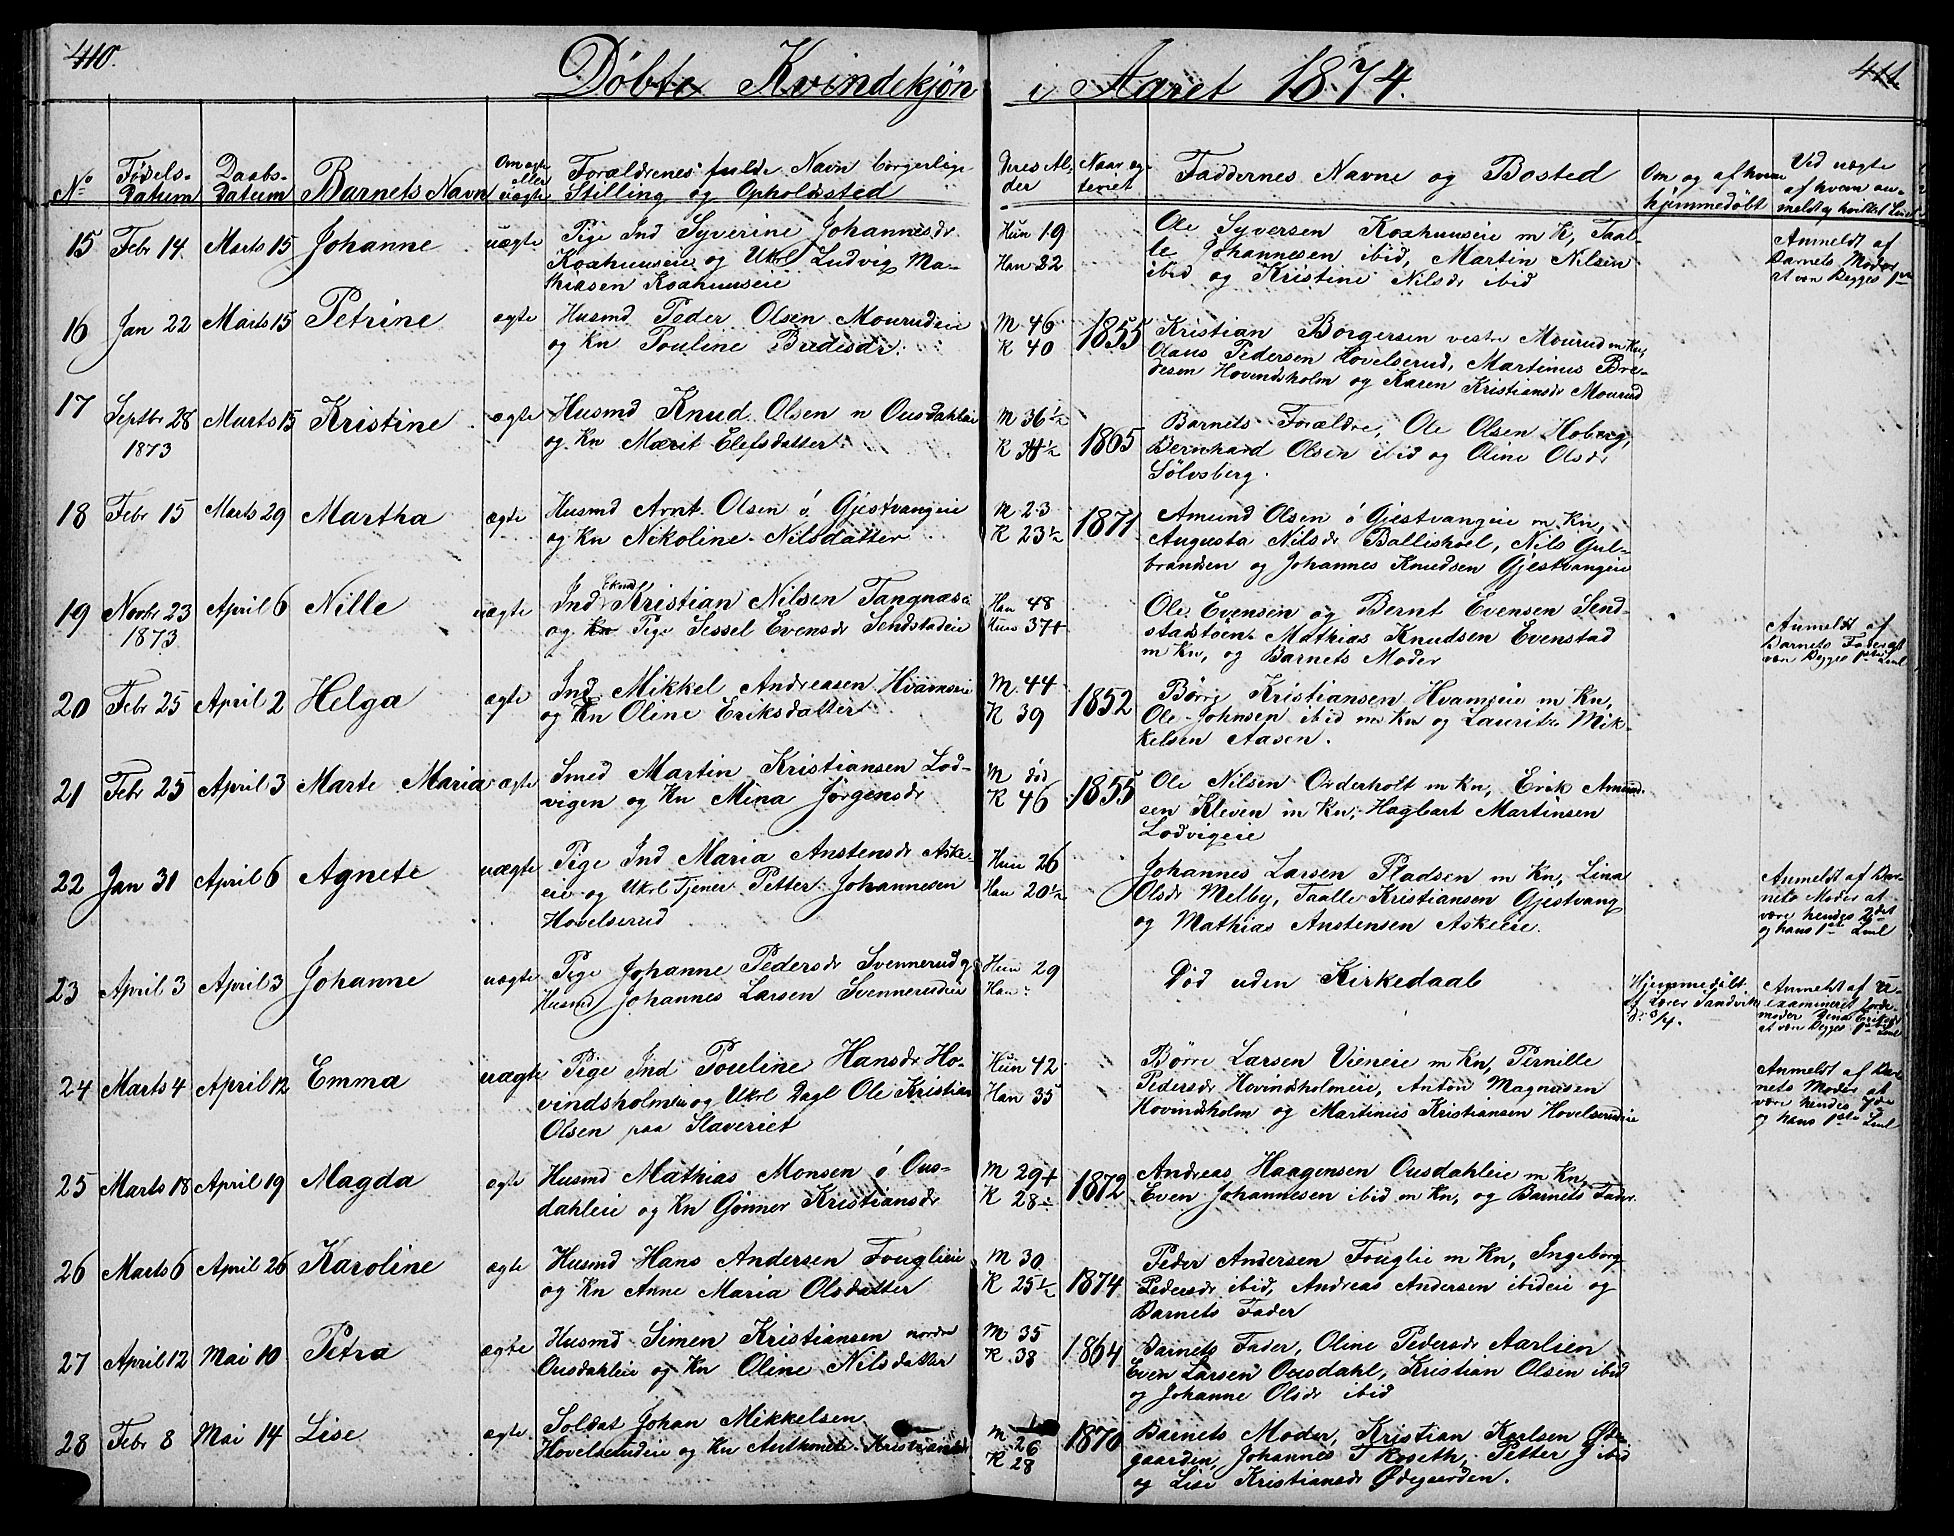 410.
Døbte Kvindekjøn i Aaret 1874.
411
No
Fødsels-Datum
Daabs-Datum
Barnets Navn
Om ægte eller uægte
Forældrenes fulde Navn borgerlige
Stilling og Opholdssted
Deres Alder
Naar og teviet
Faddernes Navne og Bosted
Om og af hvem
hjemmedøbt
Ved uægte
af hvem an-
meldt og hvilket Leiel
15 Febr 14. Marts 15 Johanne uægte Pige Ind Syverine Johannesdr
og Ukrl Ludvig Ma-
thiasen
Hun 19
Han 22
Ole Syversen m K, Taal-
le Johannesen ibid, Martin Nilsen
ibid og Kristine Nilsdr ibid
Anmeldt af
Barnets Moder
at væn Begges 1ste
16 Jan 22 Marts 15 Petrine ægte Husmd Peder Olsen Mourudeie
og Kn Pouline Bredesdr.
M 46
K 40
1855
Kristian Borgersen vestre Mourud m Kn,
Olaus Pedersen Hovelserud, Martinus Bre-
desen Hovindsholm og Karen Kristiansdr Mourud
17 Septbr 28 Marts 15 Kristine ægte Husmd Knud Olsen n Ousdahleie
1873
og Kn Marit Elefsdatter
M 36½
K 34½
1865
Barnets Forældre, Ole Olsen Hoberg,
Bernhard Olsen ibid og Oline Olsdr
Sölvsberg.
18 Febr 15 Marts 29 Martha ægte Husmd Arnt Olsen ö Gjestvangeie
og Kn Nikoline Nilsdatter
M 23
K 23½
1871
Amund Olsen ö Gjestvangeie m Kn,
Augusta Nilsdr Ballishoel, Nils Gul-
brandsen og Johannes Knudsen Gjestvangeie
19 Novbr 23 April 6 Nille uægte Ind Kristian Nilsen Tangnæsei
1873
og Kn Pige Sessel Evensdr Sendstadeie
Han 48
Hun 37+
Ole Evensen og Bernt Evensen Send-
stadstøen Mathias Knudsen Evenstad
m Kn, og Barnets Moder
Anmeldt af
Barnets Fader at
væn Begges 1ste Leiel
20 Febr 25 April 2 Helga ægte Ind Mikkel Andreasen Hvamseie
og Kn Oline Eriksdatter
M. 44
K 39
1852
Børre Kristiansen Hvamseie m Kn,
Ole Johnsen ibid m Kn og Lauritz Mik-
kelsen Aasen.
21 Febr 25 April 3 Marte Maria ægte Smed Martin Kristiansen Lod-
vigen og Kn Mina Jørgensdr
M død
K 46
1855
Ole Nilsen Orderholt m Kn, Erik Amund-
sen Kleven m Kn, Hagbart Martinsen
Lodvigeie
22 Jan 31 April 6 Agnete uægte Pige Ind Maria Anstensdr Aske-
eie og Ukrl Tjener Petter Johannesen
Hovelserud
Hun 26
Han 20½
Johannes Larsen Pladsen m Kn, Lina
Olsdr Melby, Taalle Kristiansen Gjestvang
og Mathias Anstensen Askeeie.
Anmeldt af Bar-
nets Moder at
være hendes 2det
og hans 1ste Leiel
23 April 3 April 3 Johanne uægte Pige Johanne Pedersdr Svennerud og
Husmd Johannes Larsen Svennerudeie
Hun 29
Han :
Død uden Kirkedaab
Hjemmedøbt
af Lærer Sandvik
d. 3/4.
Anmeldt af U-
examineret Jorde-
moder
at væn Begges 1ste Leiel
24 Marts 4 April 12 Emma uægte Pige Ind Pouline Hansdr Ho-
vindsholmeie og Ukrl Dagl Ole Kristian
Olsen paa Slaveriet
Hun 42
Han 35
Børre Larsen Vieneie m Kn, Pernille
Pedersdr Hovindsholmeie, Anton Magnusen
Hovindsholm og Martinus Kristiansen Hovelserudeie
Anmeldt af Bar-
nets Moder at
være hendes 7de
og hans 1ste Leiel
25 Marts 18 April 19 Magda ægte Husmd Mathias Monsen ö Ous-
dahleie og Kn Gønner Kristiansdr
M 29+
K 28÷
1872
Andreas Haagensen Ousdahleie m Kn,
Even Johannesen ibid m Kn, og Barnets Fader.
26 Marts 6 April 26 Karoline ægte Husmd Hans Andersen Fouglieie
og Kn Anne Maria Olsdatter
M 30
K 25½
1874
Peder Andersen Fouglie m Kn, Ingeborg
Pedersdr ibid, Andreas Andersen ibideie og
Barnets Fader
27 April 12 Mai 10 Petra ægte Husmd Simen Kristiansen nordre
Ousdahleie og Kn Oline Nilsdatter
M 35
K 38
1864
Barnets Fader, Oline Pedersdr Aarlien
Even Larsen Ousdahl, Kristian Olsen ibid
og Johanne Olsdr ibid
28 Febr 8 Mai 14 Lise ægte Soldat Johan Mikkelsen
og Kn Kristiansdr
M 26
K 28
1870
Barnets Moder, Kristian Karlsen Øde-
gaarden, Johannes T Roseth, Petter J ibid
og Lise Kristiansdr Ødegaarden.